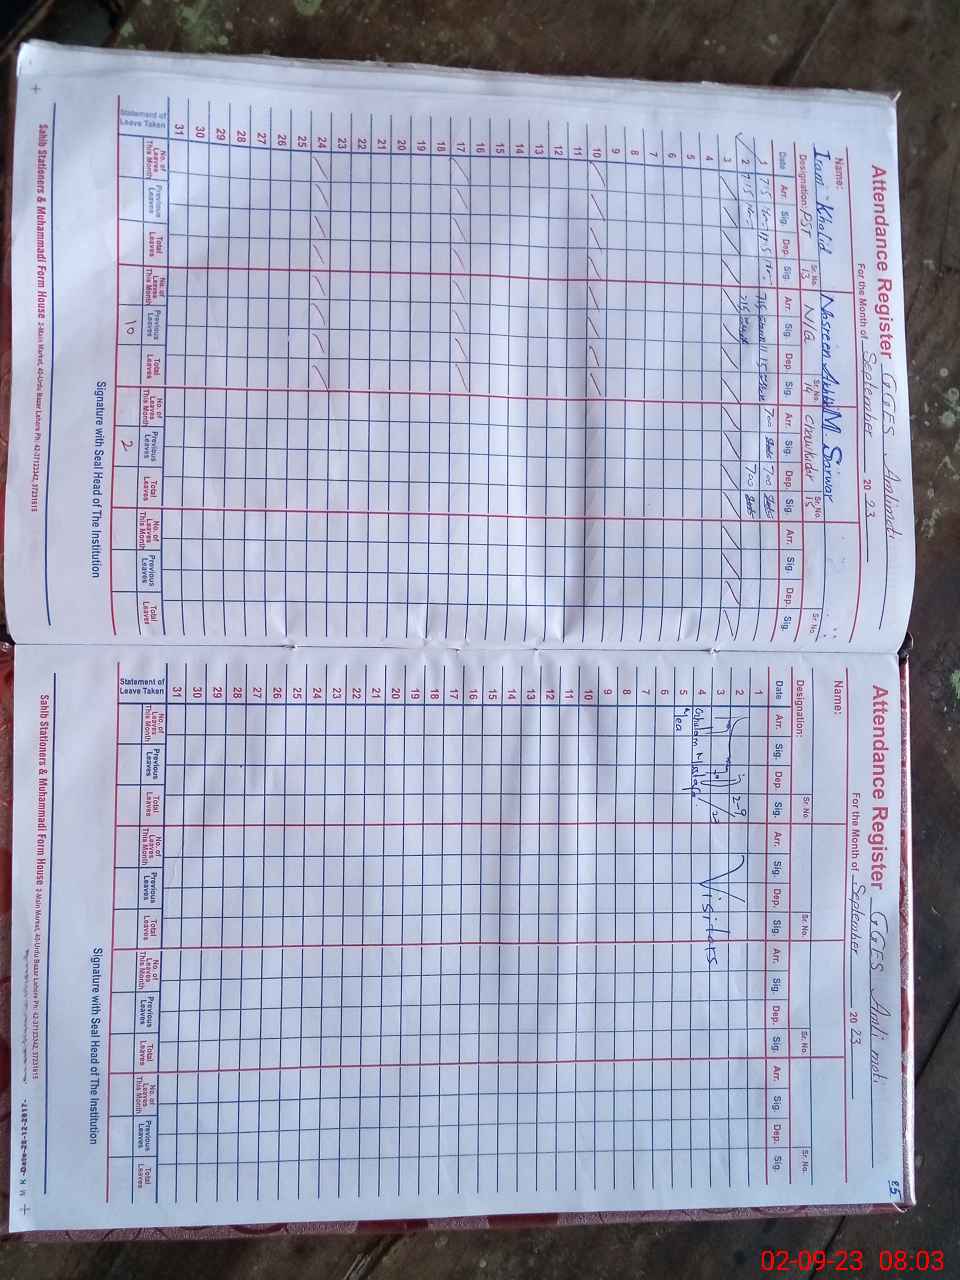 Attendance Register GGES Amlimoti
For the Month of September 20 23
Name: Iram Khalid Nasreen M. Sarwar
Designation: PST Sr. No. 13 N/Q Sr. No. 14 Chawkidar Sr. No. 15 Sr. No.
Date Arr. Sig. Dep. Sig. Arr. Sig. Dep. Sig. Arr. Sig. Dep. Sig. Arr. Sig. Dep. Sig.
1 715 715 700 700
2 715 715 700
3
4
5
6
7
8
9
10
11
12
13
14
15
16
17
18
19
20
21
22
23
24
25
26
27
28
29
30
31
Statement of Leave Taken No. of Leaves This Month Previous Leaves Total Leaves No. of Leaves This Month Previous Leaves 10 Total Leaves No. of Leaves This Month Previous Leaves 2 Total Leaves No. of Leaves This Month Previous Leaves Total Leaves
Signature with Seal Head of The Institution
Sahib Stationers & Muhammadi Form House 2-Main Market, 40-Urdu Bazar Lahore Ph: 42-37123342, 37231615
85
Attendance Register GGES Amli moti
For the Month of September 20 23
Name:
Designation: Sr. No. Sr. No. Sr. No. Sr. No.
Date Arr. Sig. Dep. Sig. Arr. Sig. Dep. Sig. Arr. Sig. Dep. Sig. Arr. Sig. Dep. Sig.
1
2 2-9/23
3 Visiters
4 Ghulam Mustafa
5 Mea
6
7
8
9
10
11
12
13
14
15
16
17
18
19
20
21
22
23
24
25
26
27
28
29
30
31
Statement of Leave Taken No. of Leaves This Month Previous Leaves Total Leaves No. of Leaves This Month Previous Leaves Total Leaves No. of Leaves This Month Previous Leaves Total Leaves No. of Leaves This Month Previous Leaves Total Leaves
Signature with Seal Head of The Institution
Sahib Stationers & Muhammadi Form House 2-Main Market, 40-Urdu Bazar Lahore Ph: 42-37123342, 37231615
02-09-23 08:03